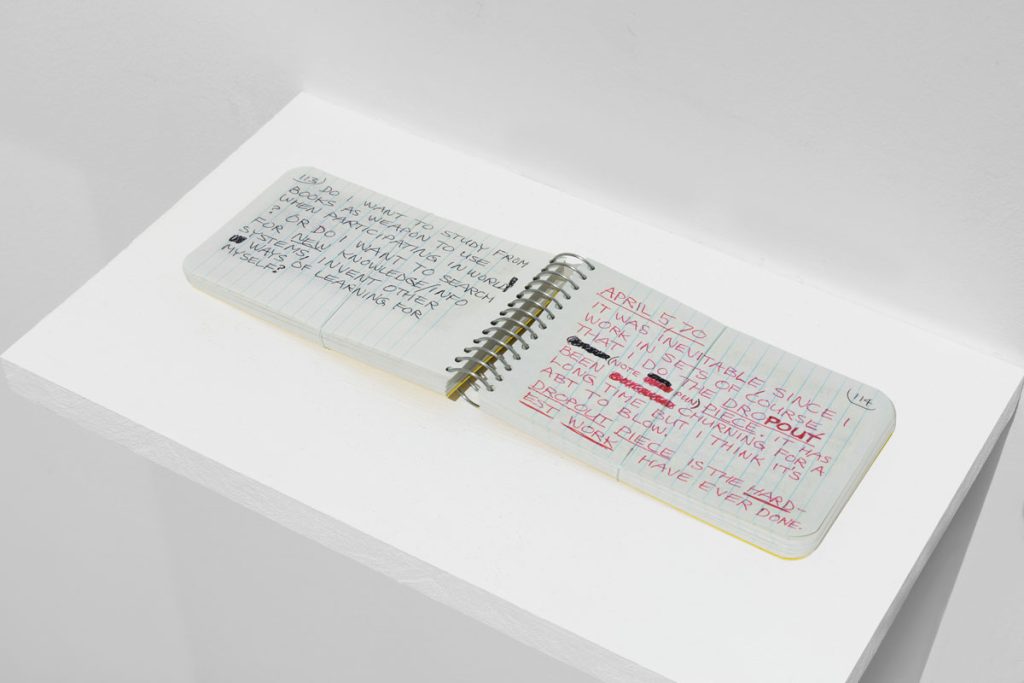 113
DO I WANT TO STUDY FROM
BOOKS AS WEAPON TO USE
WHEN PARTICIPATING IN WORLD
? OR DO I WANT TO SEARCH
FOR NEW KNOWLEDGE/INFO
SYSTEMS, INVENT OTHER
WAYS OF LEARNING FOR
MYSELF?
114
APRIL 5 70
IT WAS INEVITABLE SINCE I
WORK IN SETS OF COURSE
THAT I DO THE DROPOUT
(NOTE PUN) PIECE. IT HAS
BEEN CHURNING FOR A
LONG TIME BUT I THINK IT'S
ABT TO BLOW.
DROPOUT PIECE IS THE HARD-
EST WORK I HAVE EVER DONE.